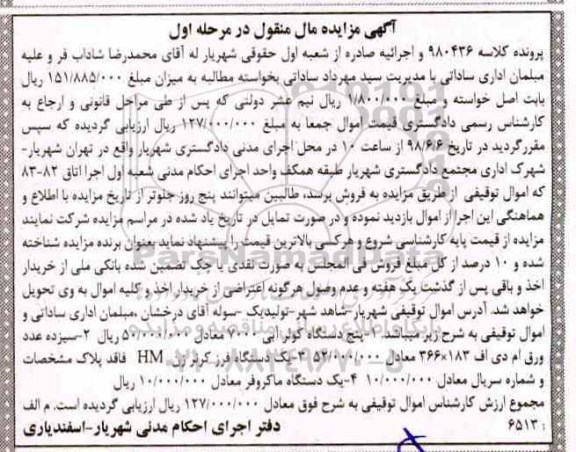 آگهی مزایده مال منقول در مرحله اول
پرونده کلاسه ۹۸۰۴۳۶ و اجرائیه صادره از شعبه اول حقوقی شهریار له آقای محمدرضا شاداب فر و علیه
مبلمان اداری ساداتی با مدیریت سید مهرداد ساداتی بخواسته مطالبه به میزان مبلغ ۱۵۱/۸۸۵/۰۰۰ ریال
بابت اصل خواسته و مبلغ ۱/۸۰۰/۰۰۰ ریال نیم عشر دولتی که پس از طی مراحل قانونی و ارجاع به
کارشناس رسمی دادگستری قیمت اموال جمعا به مبلغ ۱۲۷/۰۰۰/۰۰۰ ریال ارزیابی گردیده که سپس
مقررگردید در تاریخ ۹۸/۶/۶ از ساعت ۱۰ در محل اجرای مدنی دادگستری شهریار واقع در تهران شهریار-
شهرک اداری مجتمع دادگستری شهریار طبقه همکف واحد اجرای احکام مدنی شعبه اول اجرا اتاق ۸۲-۸۳
که اموال توقیفی از طریق مزایده به فروش برسد، طالبین میتوانند پنج روز جلوتر از تاریخ مزایده با اطلاع و
هماهنگی این اجرا از اموال بازدید نموده و در صورت تمایل در تاریخ یاد شده در مراسم مزایده شرکت نمایند
مزایده از قیمت پایه کارشناسی شروع و هرکسی بالاترین قیمت را پیشنهاد نماید بعنوان برنده مزایده شناخته
شده و ۱۰ درصد از کل مبلغ فروش فی المجلس به صورت نقدی یا چک تضمین شده بانکی ملی از خریدار
اخذ و باقی پس از گذشت یک هفته و عدم وصول هرگونه اعتراضی از خریدار اخذ و کلیه اموال به وی تحویل
خواهد شد. آدرس اموال توقیفی شهریار-شاهد شهر-تولیدبک -سوله آقای درخشان ،مبلمان اداری ساداتی و
اموال توقیفی به شرح زیر میباشد. ۱-پنج دستگاه کولر آبی ۷۰۰۰ معادل ۵۰/۰۰۰/۰۰۰ ریال ۲-سیزده عدد
ورق ام دی اف ۱۸۳×۳۶۶ معادل ۵۲/۰۰۰/۰۰۰ ۳-یک دستگاه فرز کرلر پل HM فاقد پلاک مشخصات
و شماره سریال معادل ۱۰/۰۰۰/۰۰۰ ۴-یک دستگاه ماکروفر معادل ۱۰/۰۰۰/۰۰۰ ریال
مجموع ارزش کارشناس اموال توقیفی به شرح فوق معادل ۱۲۷/۰۰۰/۰۰۰ ریال ارزیابی گردیده است. م الف
: ۶۵۱۳ دفتر اجرای احکام مدنی شهریار-اسفندیاری
ParsNamadData